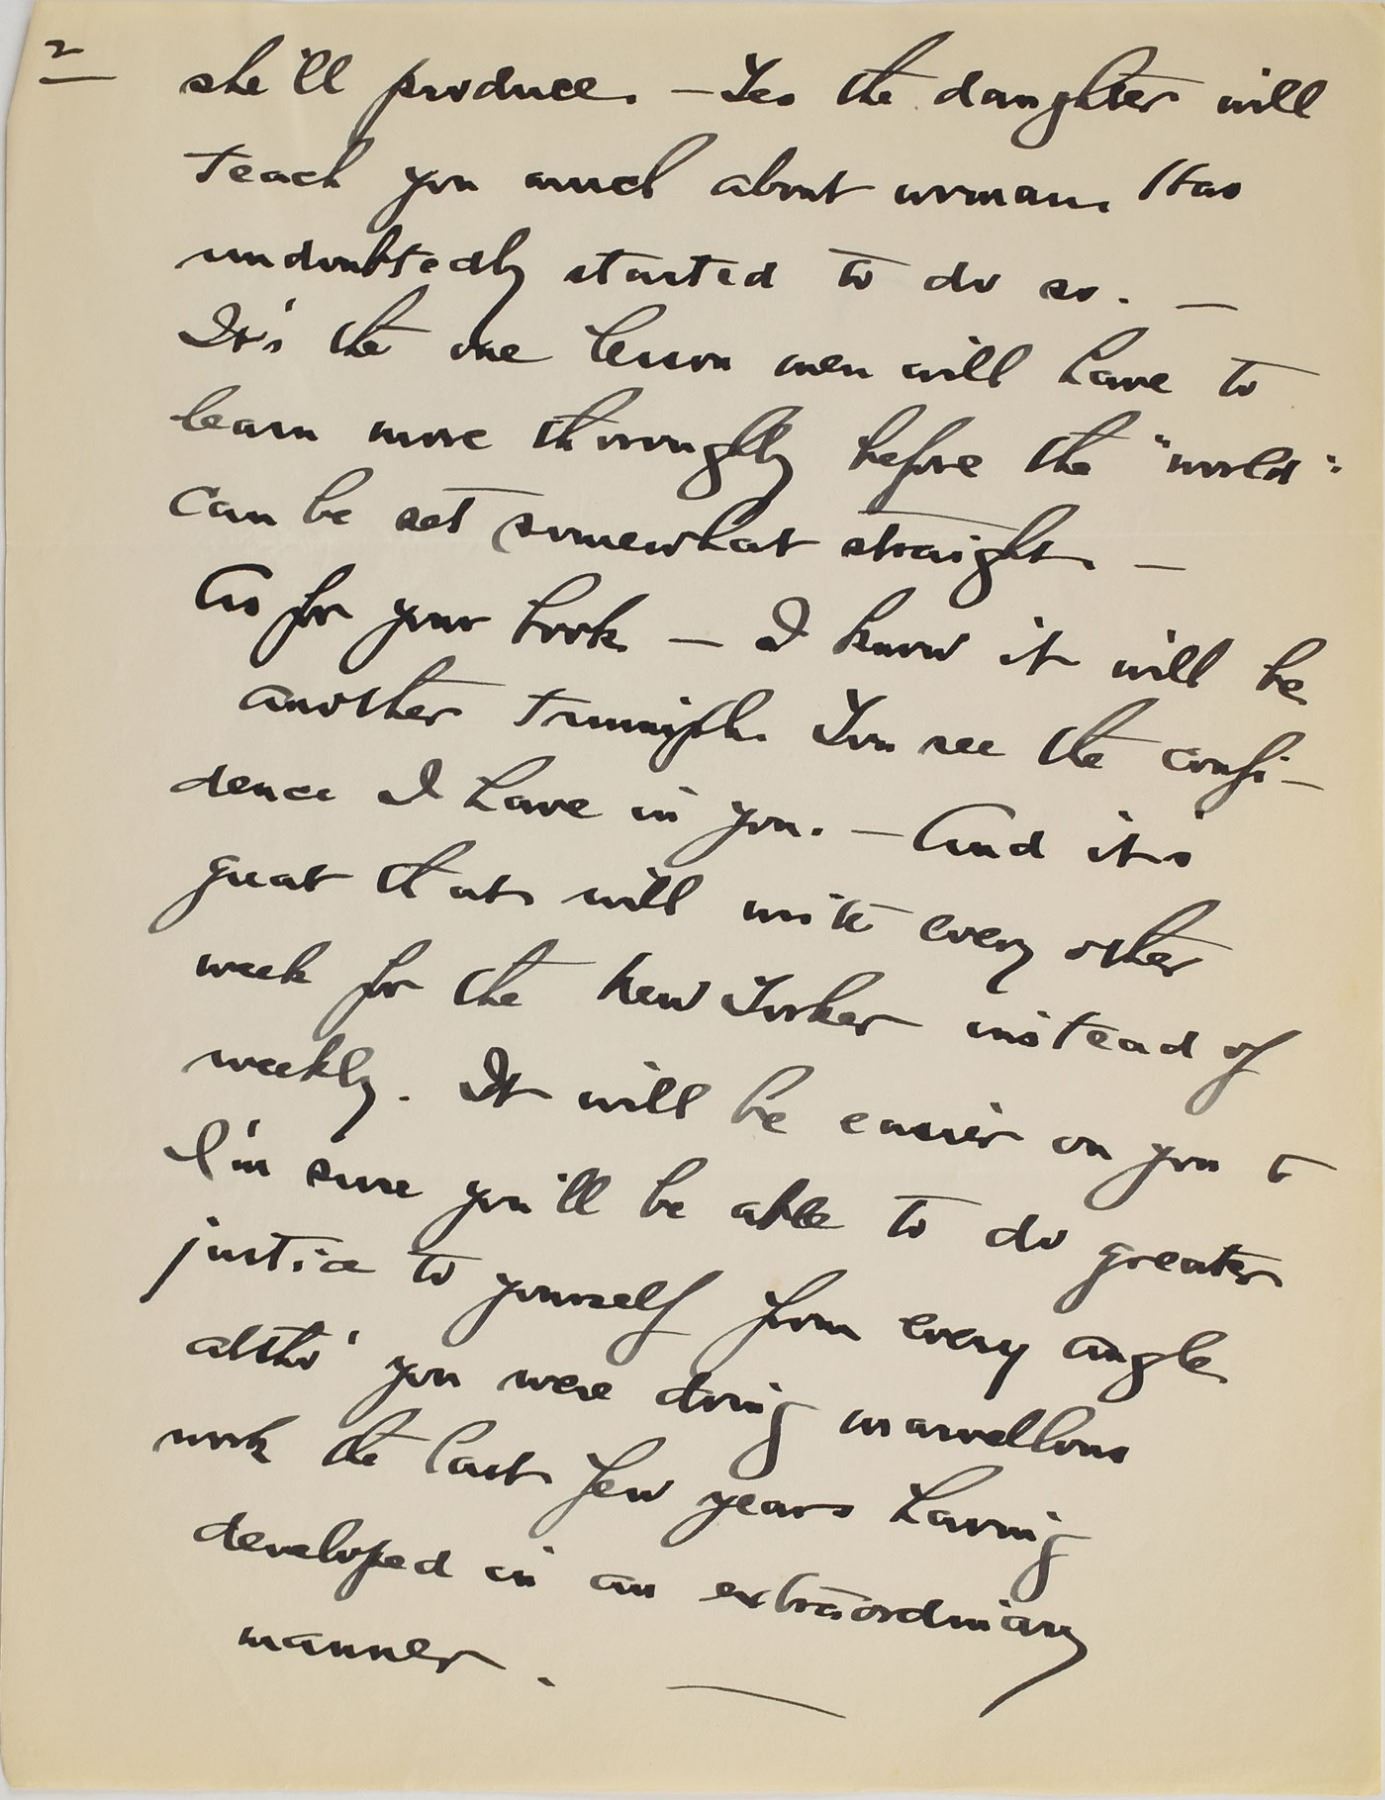 2
she'll produce. — Yes the daughter will
teach you much about woman. Has
undoubtedly started to do so. —
It's the one lesson men will have to
learn more thoroughly before the "world"
can be set somewhat straight. —
As for your book — I know it will be
another triumph. You see the confi-
dence I have in you. — And it's
great that will write every other
week for the New Yorker instead of
weekly. It will be easier on you &
I'm sure you'll be able to do greater
justice to yourself from every angle
altho' you were doing marvellous
work the last few years having
developed in an extraordinary
manner. —